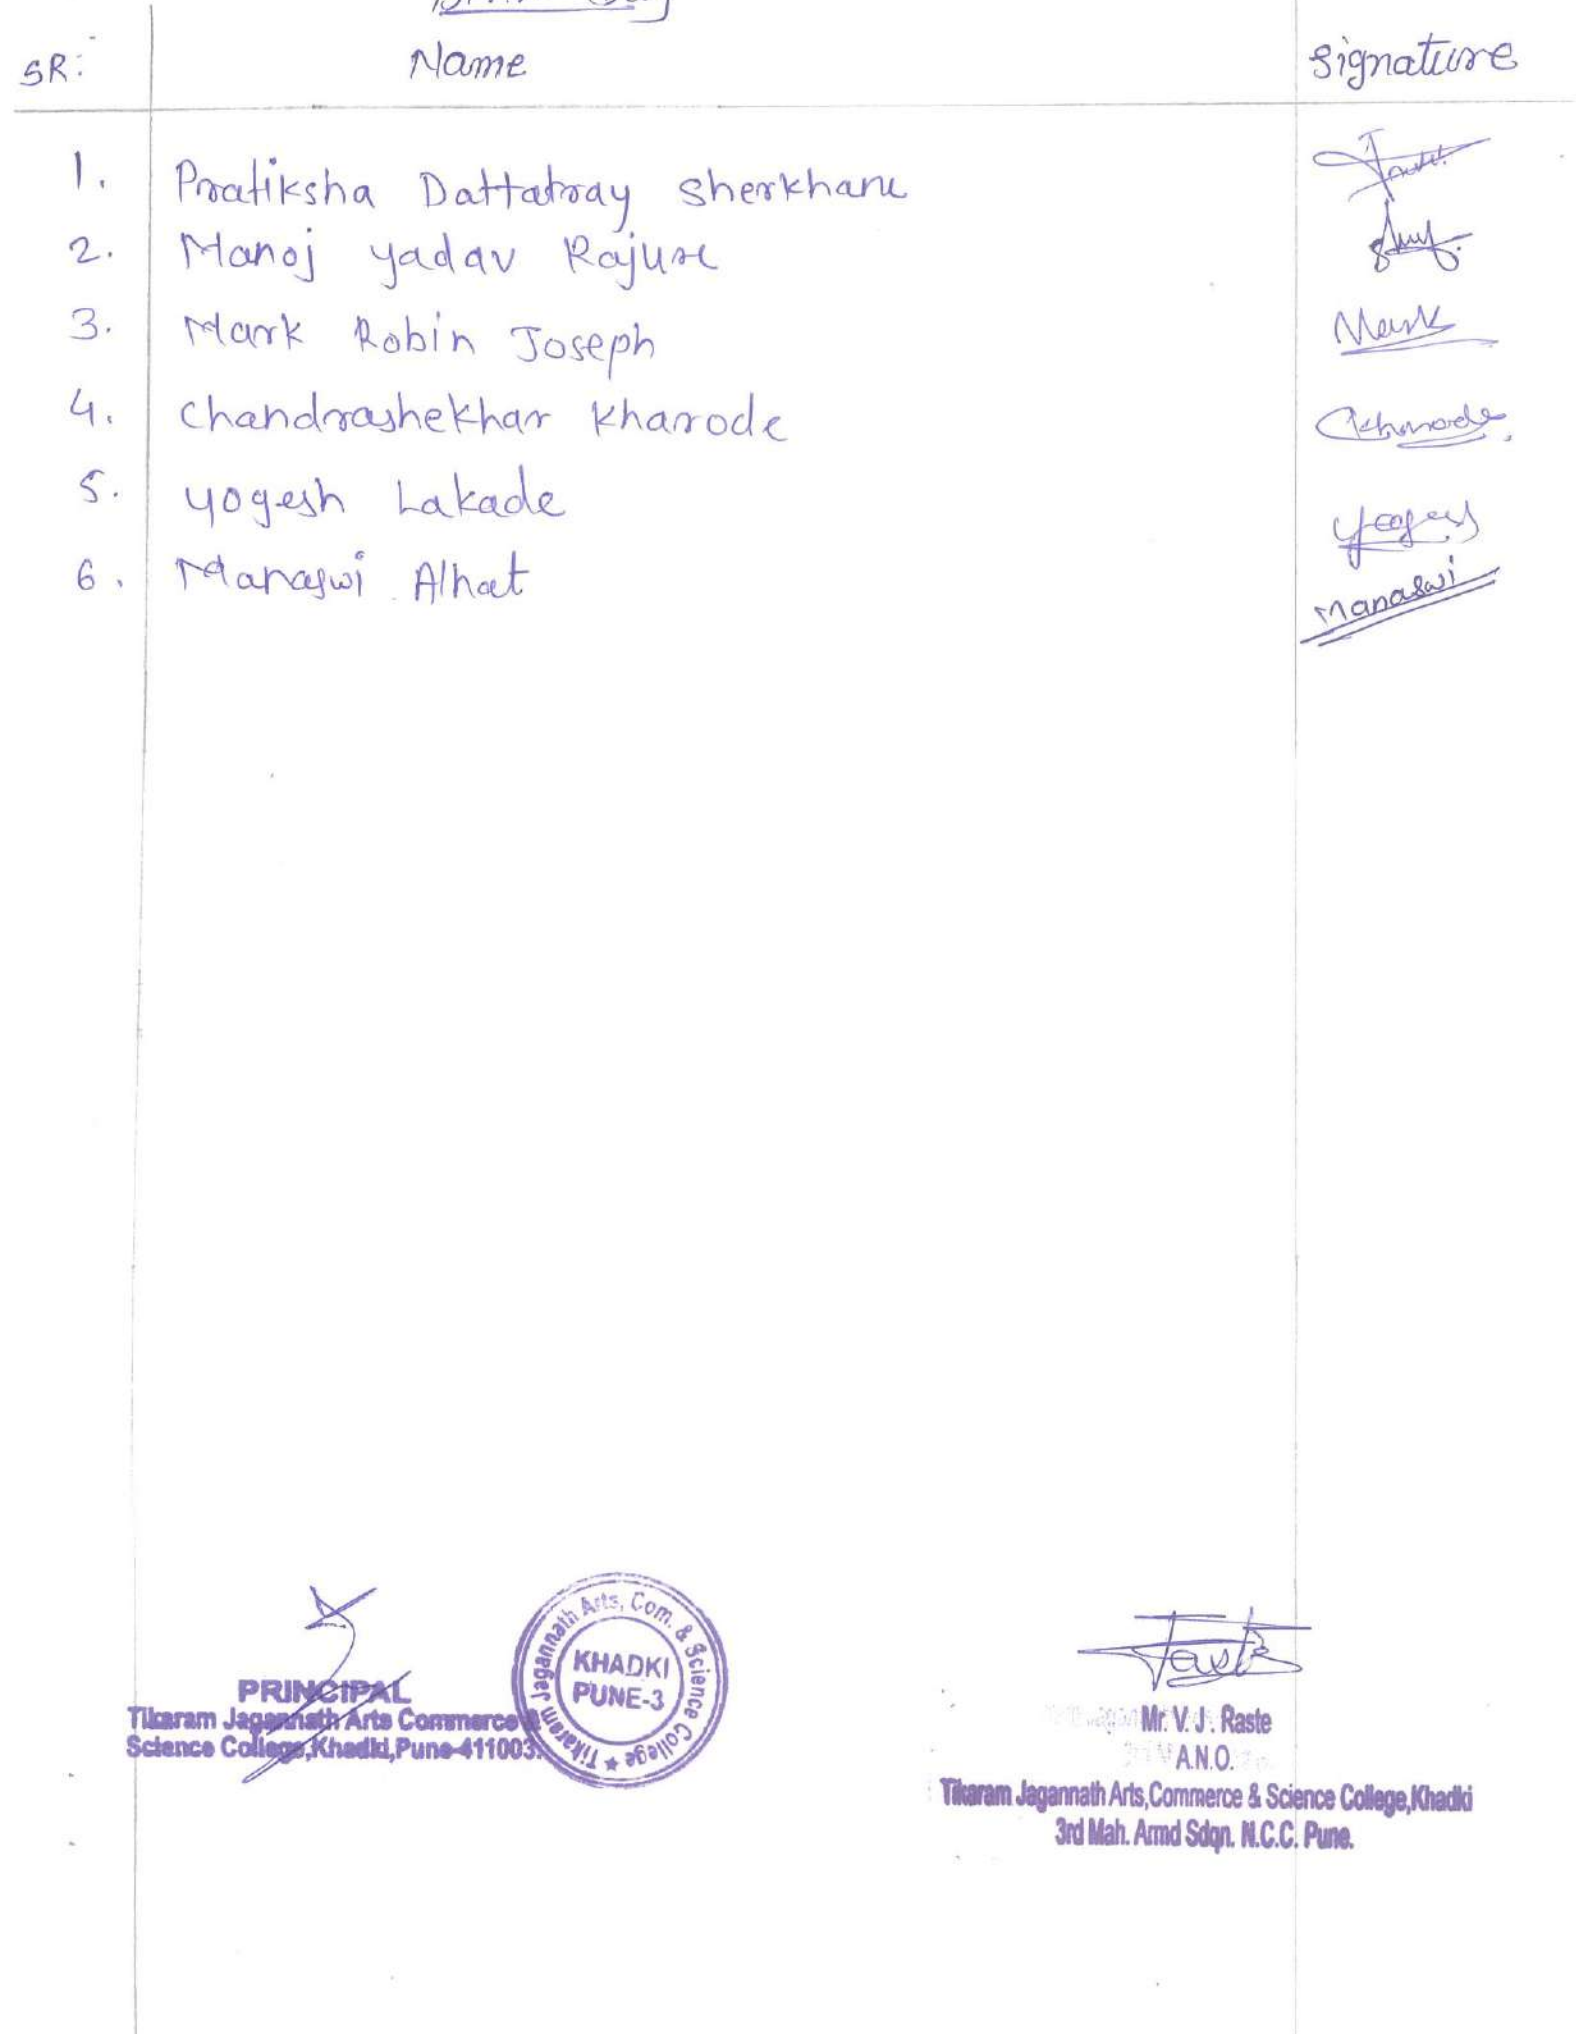 SR: Name Signature
1. Pratiksha Dattatray Sherkhane
2. Manoj Yadav Rajure
3. Mark Robin Joseph Mark
4. Chandrashekhar Kharode
5. Yogesh Lakade
6. Manaswi Alhat Manaswi
PRINCIPAL
Tikaram Jagannath Arts Commerce &
Science College,Khadki,Pune-411003.
Tikaram Jagannath Arts, Com. & Science College ★
KHADKI
PUNE-3
Mr. V. J. Raste
A.N.O.
Tikaram Jagannath Arts,Commerce & Science College,Khadki
3rd Mah. Armd Sdqn. N.C.C. Pune.